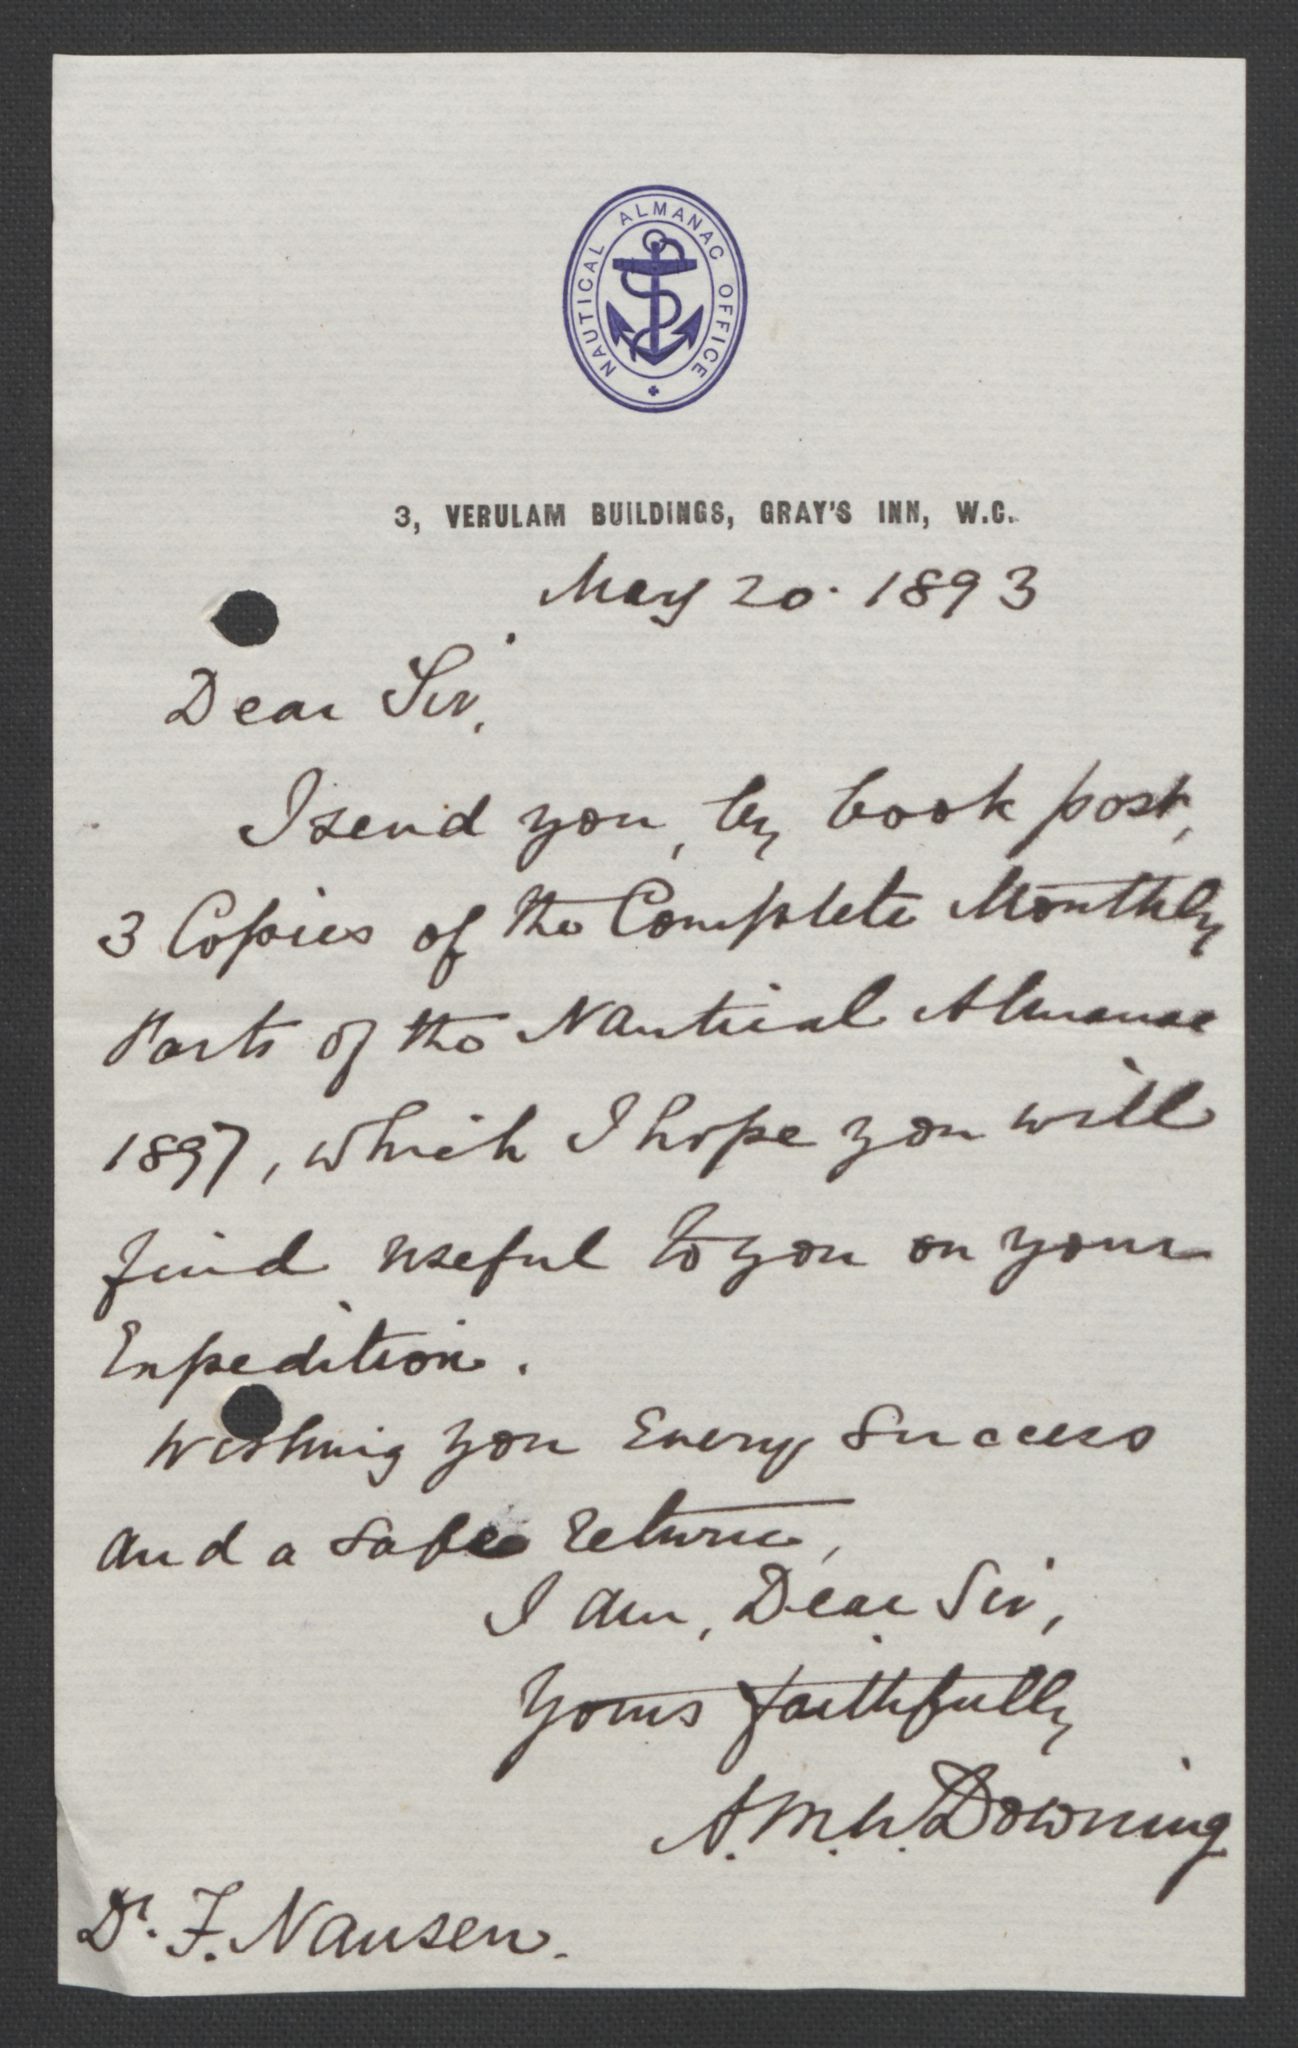 NAUTICAL ALMANAC OFFICE
3, VERULAM BUILDINGS, GRAY'S INN, W.C.
May 20. 1893
Dear Sir,
I send you, by book post,
3 Copies of the Complete Monthly
Parts of the Nautical Almanac
1897, which I hope you will
find useful to you on your
Expedition.
Wishing you Every Success
and a safe return,
I am, Dear Sir,
Yours faithfully
A.M.W. Downing
Dr. F. Nansen.